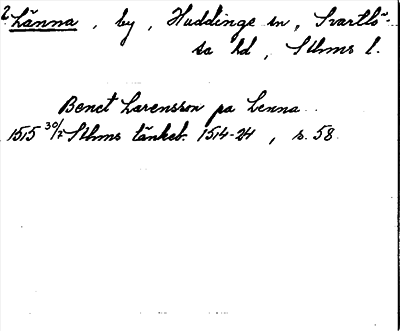 2 Länna, by, Huddinge sn, Svartlö-
sa hd, Sthms l.
Benet Larensson pa Lenna.
1515 30/7 Sthms tänkeb. 1514-24, s. 58.